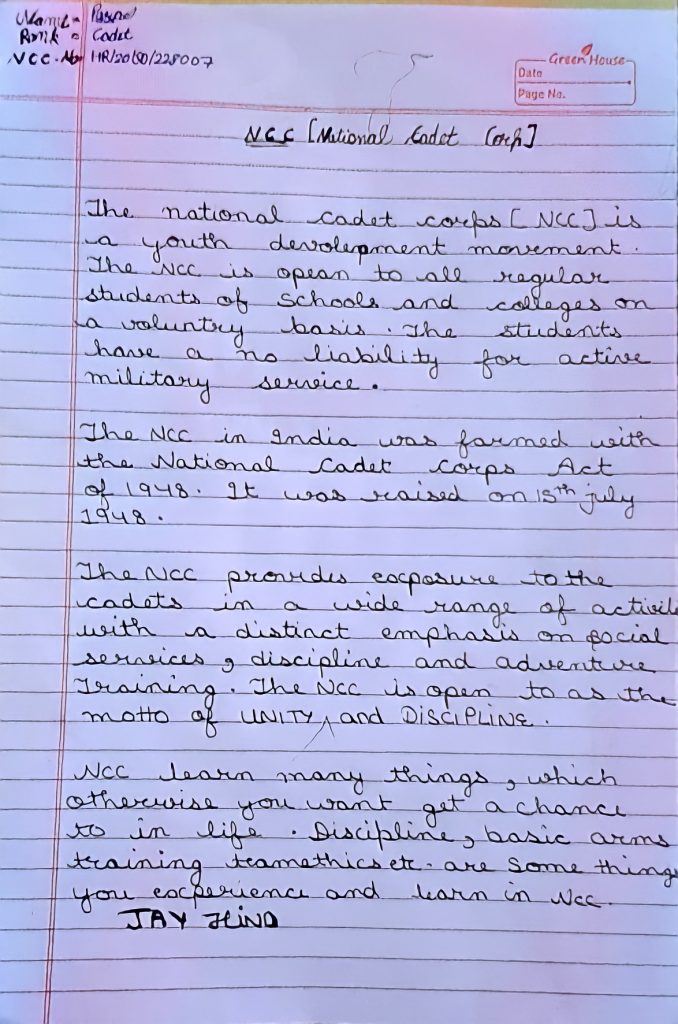 Name =
Rank = Cadet
NCC. No HR/20/SD/228007
Green House
Date
Page No.
NCC [National Cadet Corp]
The national cadet corps [NCC] is
a youth devolepment movement.
The NCC is opean to all regular
students of schools and colleges on
a voluntry basis. The students
have a no liability for active
military service.
The NCC in India was farmed with
the National Cadet corps Act
of 1948. It was raised on 15th july
1948.
The NCC provides exposure to the
cadets in a wide range of activit
with a distinct emphasis on social
services, discipline and adventure
Training. The NCC is open to as the
motto of UNITY and DISCIPLINE.
NCC learn many things, which
otherwise you want get a chance
to in life. Discipline, basic arms
training teamethics etc. are some things
you experience and learn in NCC.
JAY HIND